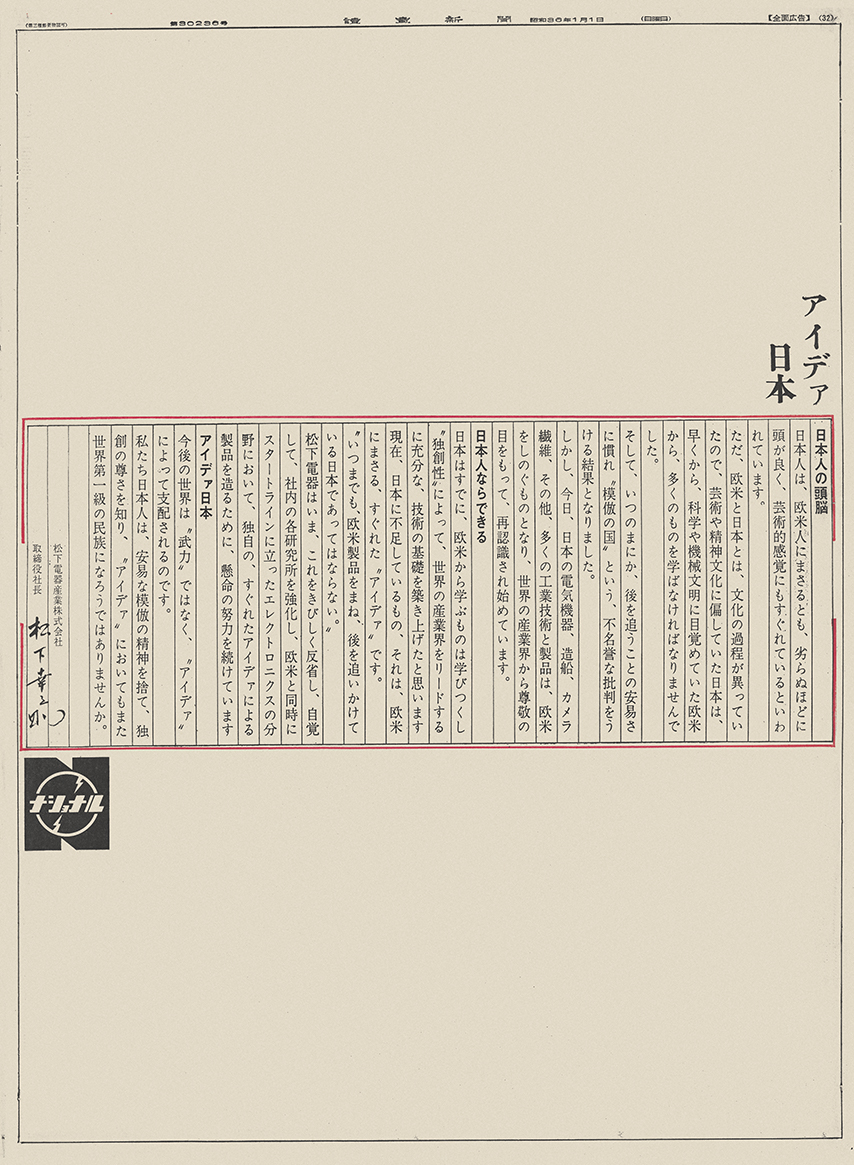 第30236号
讀賣新聞
昭和36年1月1日
(日曜日)
【全面広告】
(32)
アイデア
日本
日本人の頭脳
日本人は、欧米人にまさるとも、劣らぬほどに
頭が良く、芸術的感覚にもすぐれているといわ
れています。
ただ、欧米と日本とは、文化の過程が異ってい
たので、芸術や精神文化に偏していた日本は、
早くから、科学や機械文明に目覚めていた欧米
から、多くのものを学ばなければなりませんで
した。
そして、いつのまにか、後を追うことの安易さ
に慣れ〝模倣の国〟という、不名誉な批判をう
ける結果となりました。
しかし、今日、日本の電気機器、造船、カメラ
繊維、その他、多くの工業技術と製品は、欧米
をしのぐものとなり、世界の産業界から尊敬の
目をもって、再認識され始めています。
日本人ならできる
日本はすでに、欧米から学ぶものは学びつくし
〝独創性〟によって、世界の産業界をリードする
に充分な、技術の基礎を築き上げたと思います
現在、日本に不足しているもの、それは、欧米
にまさる、すぐれた〝アイデア〟です。
〝いつまでも、欧米製品をまね、後を追いかけて
いる日本であってはならない。〟
松下電器はいま、これをきびしく反省し、自覚
して、社内の各研究所を強化し、欧米と同時に
スタートラインに立ったエレクトロニクスの分
野において、独自の、すぐれたアイディアによる
製品を造るために、懸命の努力を続けています
アイデア日本
今後の世界は〝武力〟ではなく、〝アイデア〟
によって支配されるのです。
私たち日本人は、安易な模倣の精神を捨て、独
創の尊さを知り、〝アイデア〟においてもまた
世界第一級の民族になろうではありませんか。
松下電器産業株式会社
取締役社長 松下幸之助
ナショナル